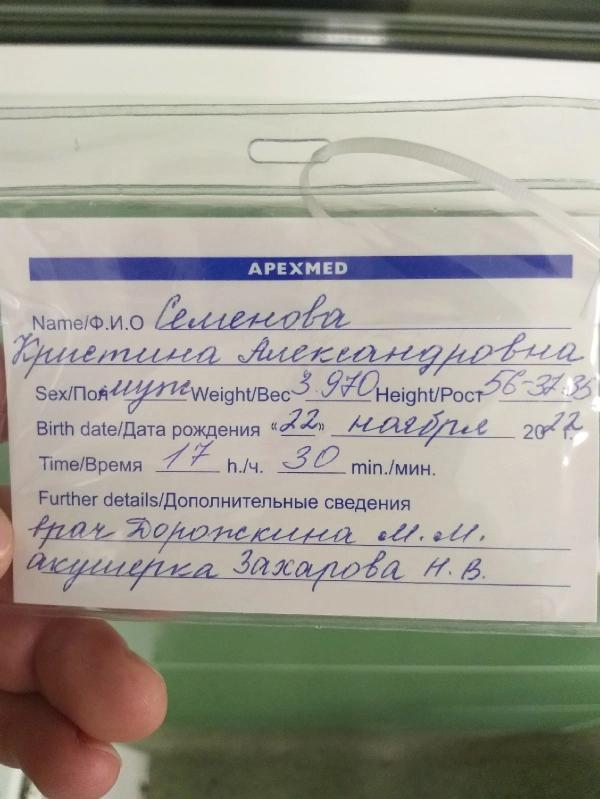 APEXMED
Name/Ф.И.О Семенова
Кристина Александровна
Sex/Пол муж Weight/Вес 3.970 Height/Рост 56-37-35
Birth date/Дата рождения «22» ноября 2022 г.
Time/Время 17 h./ч. 30 min./мин.
Further details/Дополнительные сведения
врач Дорожкина М.М.
акушерка Захарова Н.В.